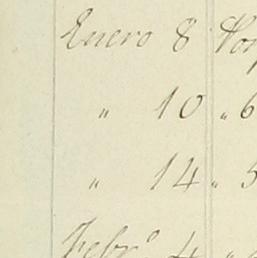 Enero 8
" 10 " 6
" 14 "
Febr.º 4 "